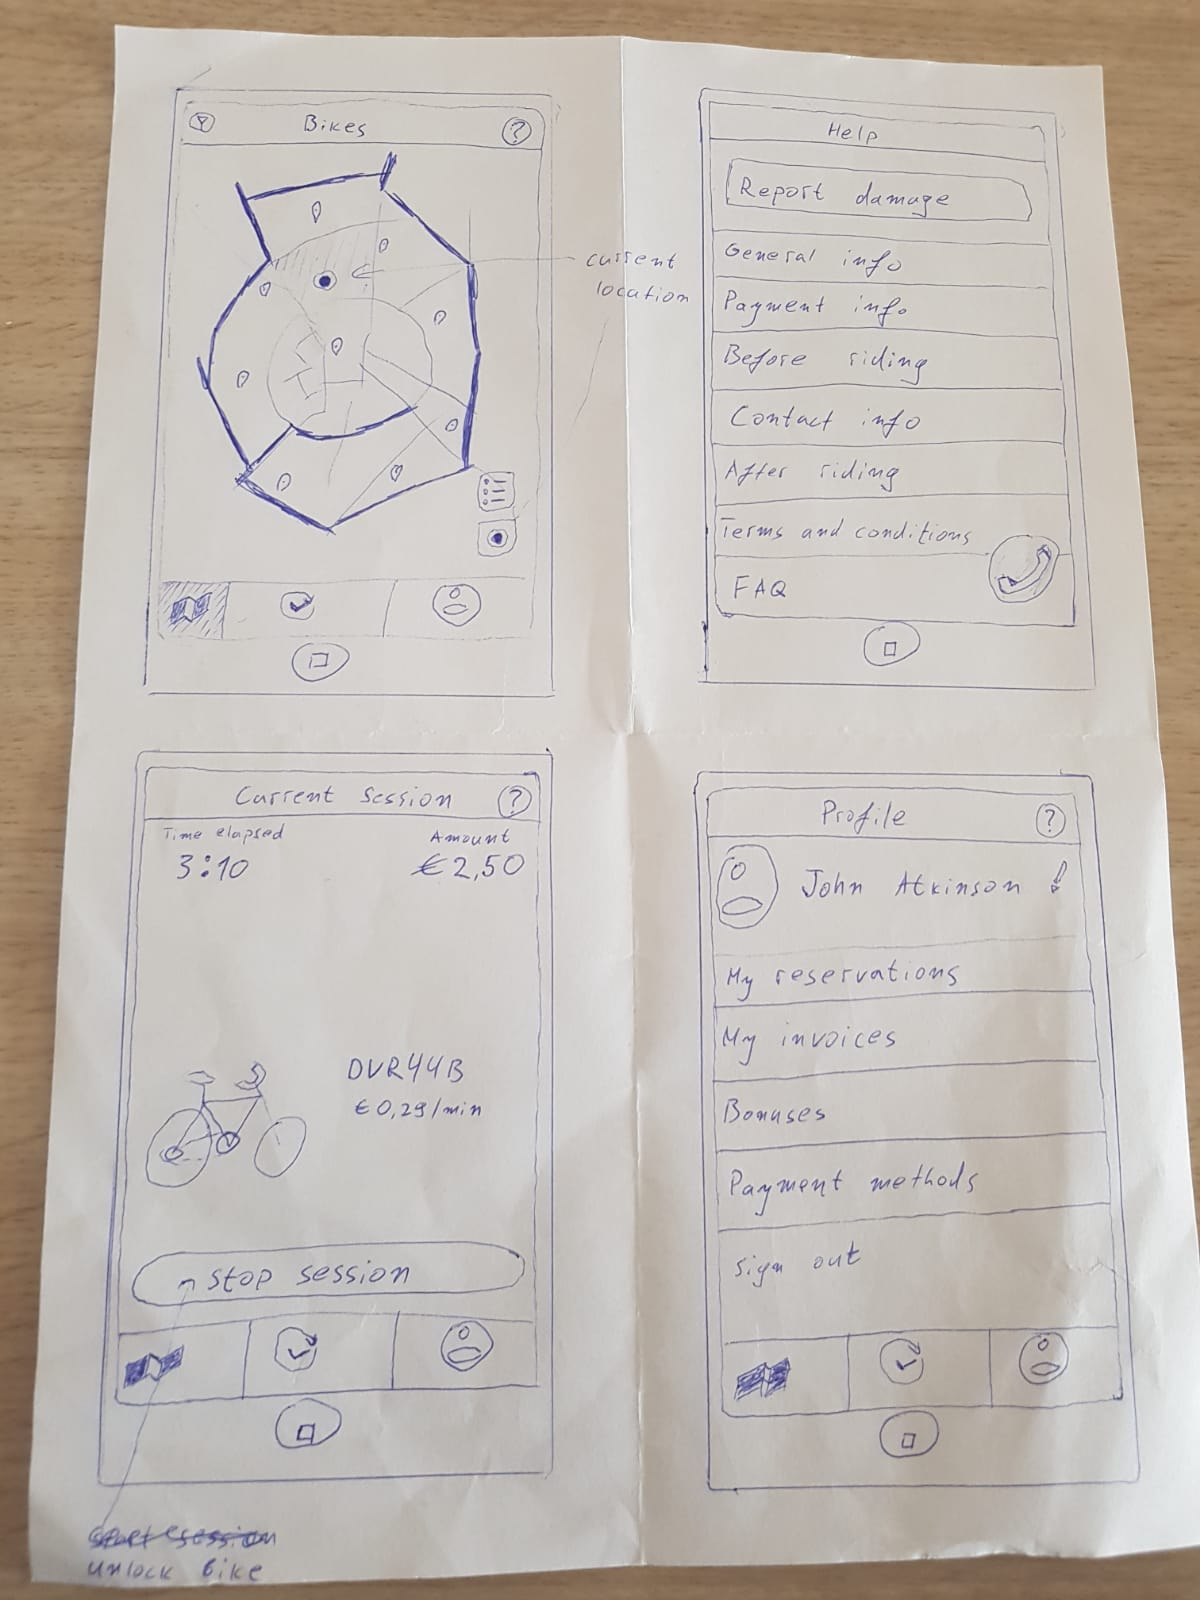 Bikes
?
current
location
Help
Report damage
General info
Payment info
Before riding
Contact info
After riding
Terms and conditions
FAQ
Current session
?
Time elapsed
Amount
3:10
€2,50
DVR44B
€0,29/min
stop session
unlock bike
Profile
?
John Atkinson
My reservations
My invoices
Bonuses
Payment methods
sign out